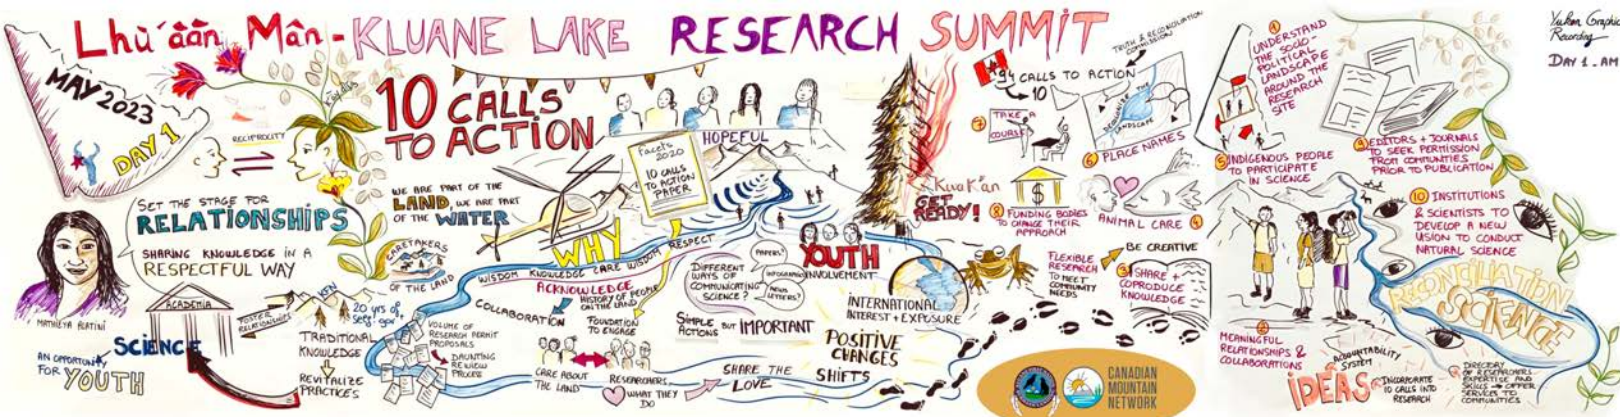 Lhù'ààn Mân - KLUANE LAKE RESEARCH SUMMIT
MAY 2023
DAY 1
RECIPROCITY
SET THE STAGE FOR
RELATIONSHIPS
SHARING KNOWLEDGE IN A
RESPECTFUL WAY
MATHIEYA ALATINI
ACADEMIA
SCIENCE
AN OPPORTUNITY
FOR YOUTH
FOSTER
RELATIONSHIPS
KFN
20 yrs of
self-gov.
TRADITIONAL
KNOWLEDGE
REVITALIZE
PRACTICES
10 CALLS
TO ACTION
WE ARE PART OF THE
LAND, WE ARE PART
OF THE WATER
CARETAKERS
OF THE LAND
WHY
Facets
2020
10 CALLS
TO ACTION
PAPER
HOPEFUL
WISDOM KNOWLEDGE CARE WISDOM RESPECT
ACKNOWLEDGE
HISTORY OF PEOPLE
ON THE LAND
COLLABORATION
FOUNDATION
TO ENGAGE
VOLUME OF
RESEARCH PERMIT
PROPOSALS
DAUNTING
REVIEW
PROCESS
CARE ABOUT
THE LAND
RESEARCHERS
WHAT THEY
DO
SHARE THE
LOVE
DIFFERENT
WAYS OF
COMMUNICATING
SCIENCE?
PAPERS?
NEWS
LETTERS?
SIMPLE BUT IMPORTANT
ACTIONS
YOUTH
INVOLVEMENT
INTERNATIONAL
INTEREST + EXPOSURE
POSITIVE
CHANGES
SHIFTS
GET
READY!
TRUTH & RECONCILIATION
COMMISSION
94 CALLS TO ACTION
10
7 TAKE A
COURSE
6 PLACE NAMES
8 FUNDING BODIES
TO CHANGE THEIR
APPROACH
ANIMAL CARE 4
FLEXIBLE
RESEARCH
TO MEET
COMMUNITY
NEEDS
BE CREATIVE
3 SHARE +
COPRODUCE
KNOWLEDGE
CANADIAN
MOUNTAIN
NETWORK
1 UNDERSTAND
THE SOCIO-
POLITICAL
LANDSCAPE
AROUND THE
RESEARCH
SITE
5 INDIGENOUS PEOPLE
TO PARTICIPATE
IN SCIENCE
9 EDITORS + JOURNALS
TO SEEK PERMISSION
FROM COMMUNITIES
PRIOR TO PUBLICATION
10 INSTITUTIONS
& SCIENTISTS TO
DEVELOP A NEW
VISION TO CONDUCT
NATURAL SCIENCE
RECONCILIATION
SCIENCE
2
MEANINGFUL
RELATIONSHIPS &
COLLABORATIONS
IDEAS
ACCOUNTABILITY
SYSTEM
INCORPORATE
10 CALLS INTO
RESEARCH
DIRECTORY
OF RESEARCHERS
EXPERTISE AND
SKILLS → OFFER
SERVICES TO
COMMUNITIES
Yukon Graphic
Recording
DAY 1. AM